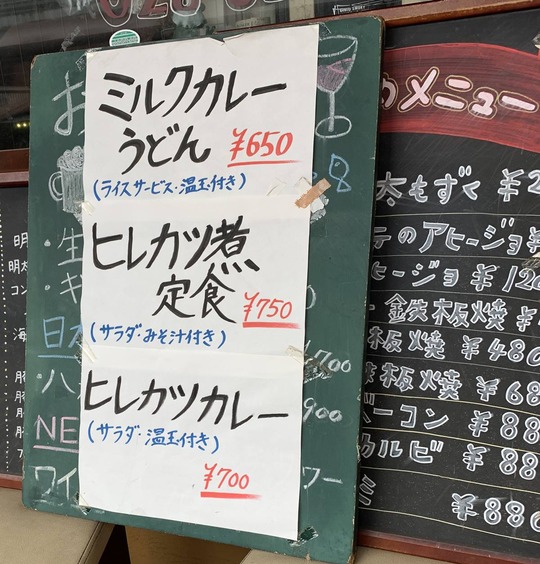 ミルクカレー
うどん ¥650
(ライスサービス・温玉付き)
ヒレカツ煮
定食 ¥750
(サラダ・みそ汁付き)
ヒレカツカレー
(サラダ・温玉付き)
¥700
お
・生
・キ
日
・ハ
700
900
NE
ワイ
メニュー
太もずく ¥2
のアヒージョ ¥
ヒージョ ¥120
・鉄板焼 ¥
板焼 ¥480
鉄板焼 ¥68
ベーコン ¥88
カルビ ¥88
¥880